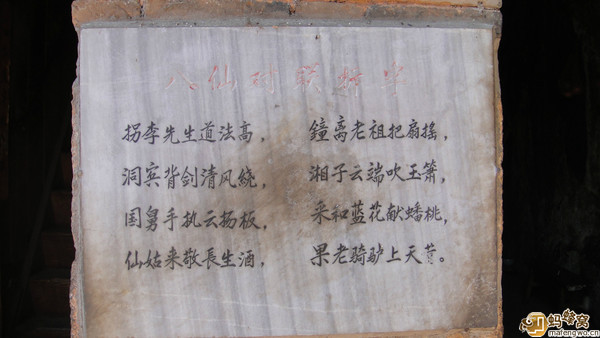 八仙对联解字
拐李先生道法高，鐘离老祖把扇摇，
洞宾背剑清风绕，湘子云端吹玉箫，
国舅手执云扬板，采和蓝花献蟠桃，
仙姑来敬長生酒，果老骑驴上天。
蚂蜂窝
mafengwo.cn